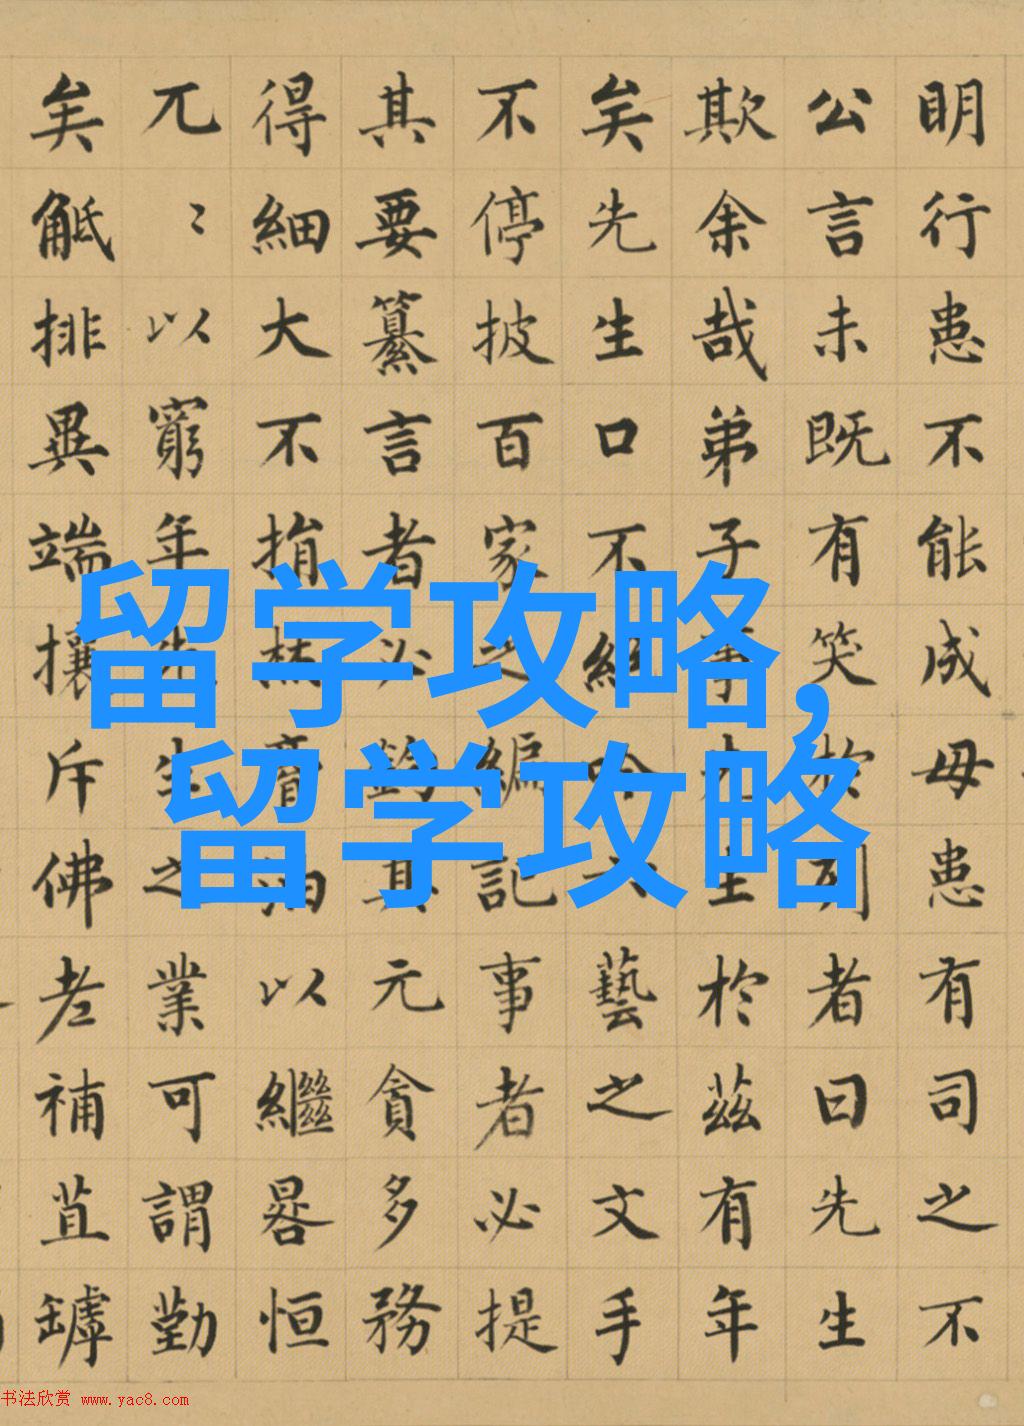 明行患不能成毋患有司之不
公言未既有笑於列者曰先生
欺余哉弟子事先生於茲有年
矣先生口不絕吟六藝之文手
不停披百家之編記事者必提
其要纂言者必鉤其元貪多務
得細大不捐焚膏油以繼晷恒
兀〻以窮年先生之業可謂勤
矣觝排異端攘斥佛老補苴罅
留学攻略,
留学攻略
书法欣赏 www.yac8.com